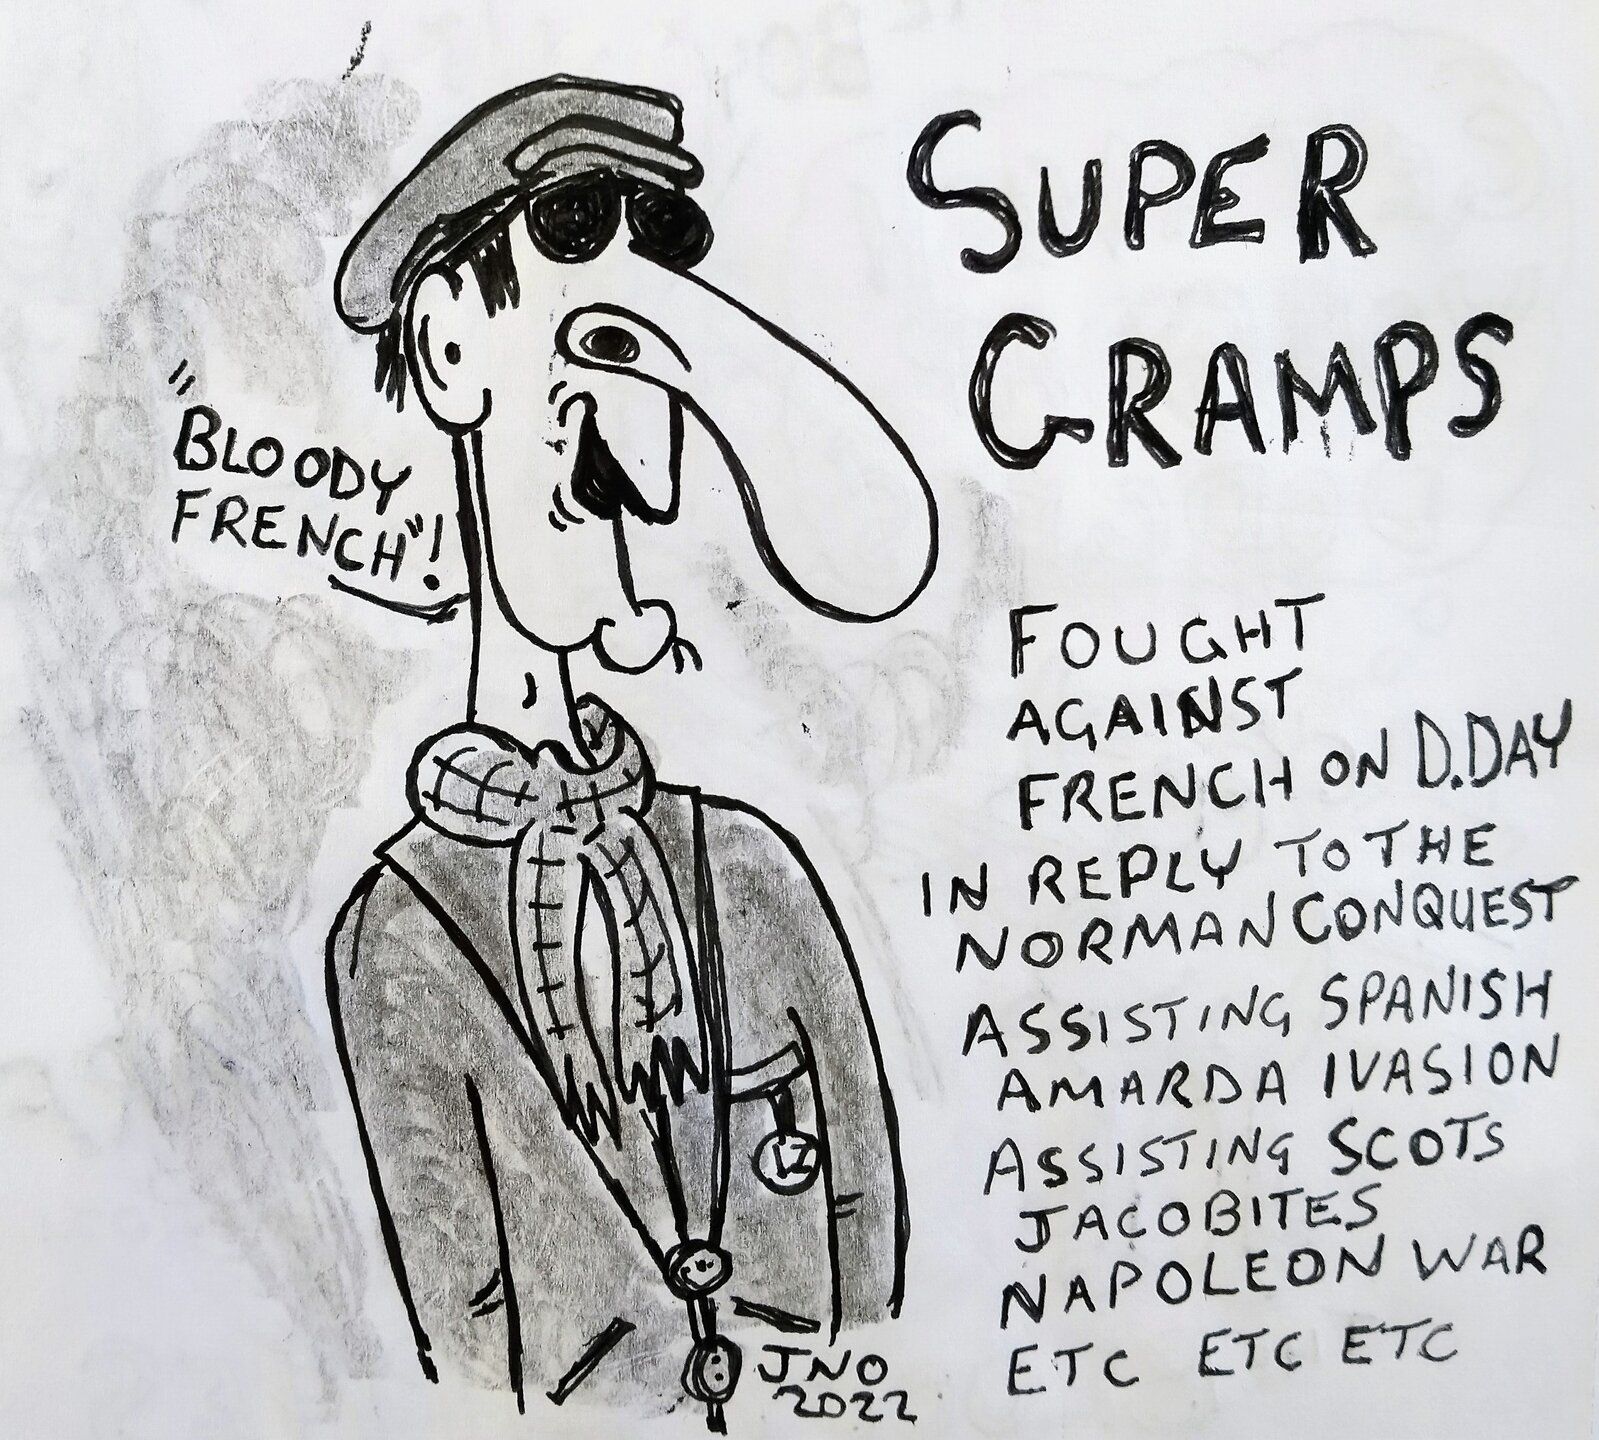 SUPER
GRAMPS
"BLOODY
FRENCH"!
FOUGHT
AGAINST
FRENCH ON D.DAY
IN REPLY TO THE
NORMAN CONQUEST
ASSISTING SPANISH
AMARDA IVASION
ASSISTING SCOTS
JACOBITES
NAPOLEON WAR
ETC ETC ETC
JNO
2022